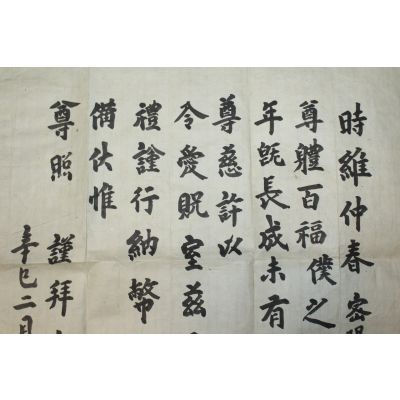 時維仲春密陽
尊體百福僕之
年旣長成未有
尊慈許以
令愛貺室茲
禮謹行納幣
備伏惟
尊照 謹拜
辛巳二月